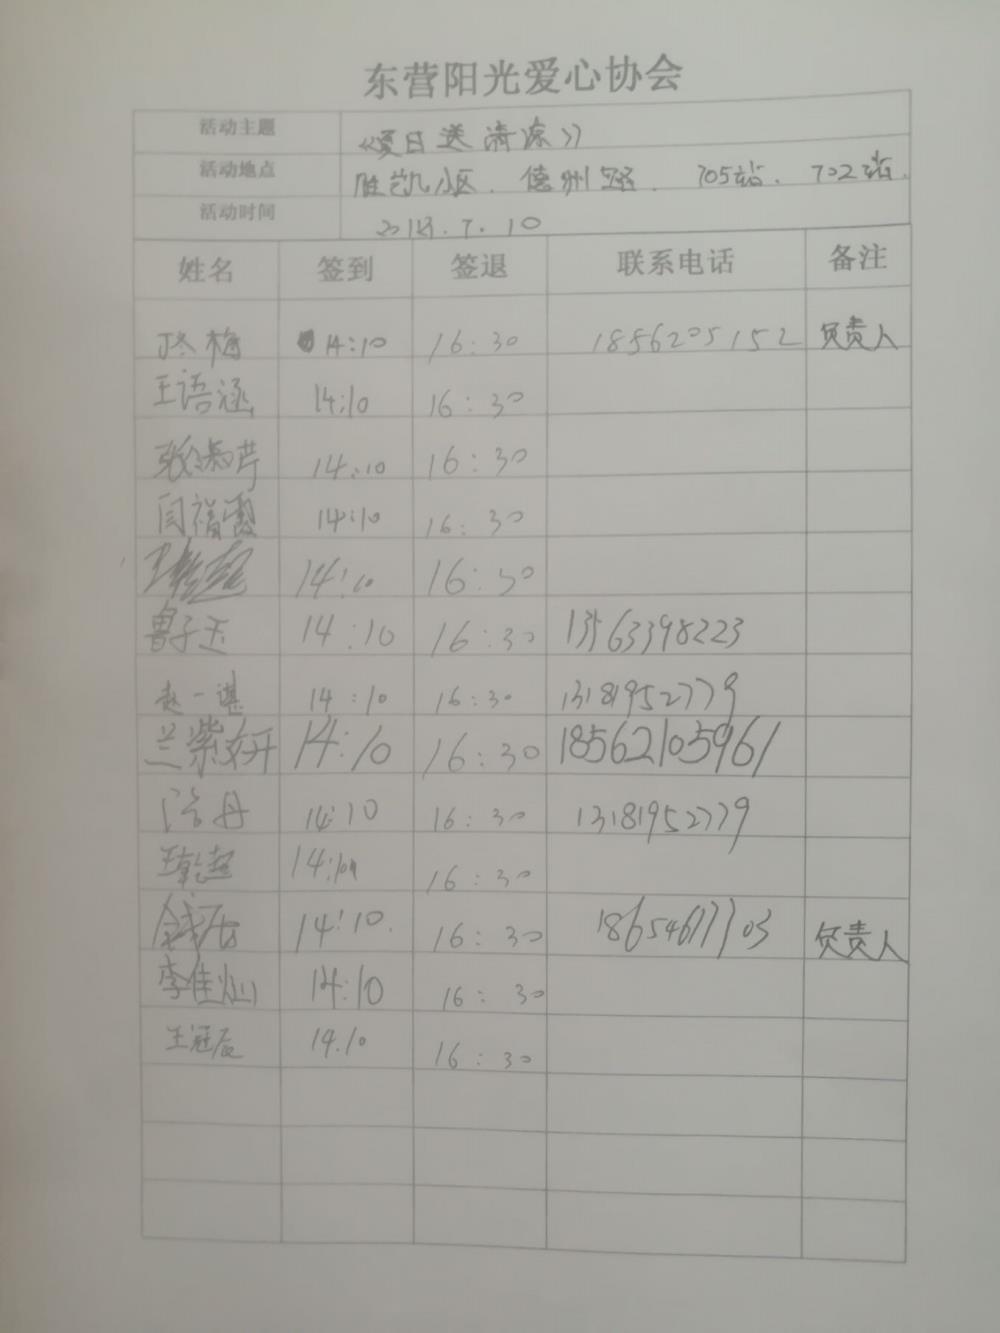 东营阳光爱心协会
活动主题 《夏日送清凉》
活动地点 胜凯小区. 德州路. 705站. 702站.
活动时间 7.10
姓名 签到 签退 联系电话 备注
梅 14:10 16:30 1856205152 负责人
王语涵 14:10 16:30
张淑芹 14:10 16:30
闫福霞 14:10 16:30
14:10 16:30
鲁子玉 14:10 16:30 13563398223
赵一谌 14:10 16:30 13181952779
兰紫妍 14:10 16:30 18562105961
丹 14:10 16:30 13181952779
王乾超 14:10 16:30
14:10. 16:30 18654617703 负责人
李佳灿 14:10 16:30
王冠辰 14.10 16:30